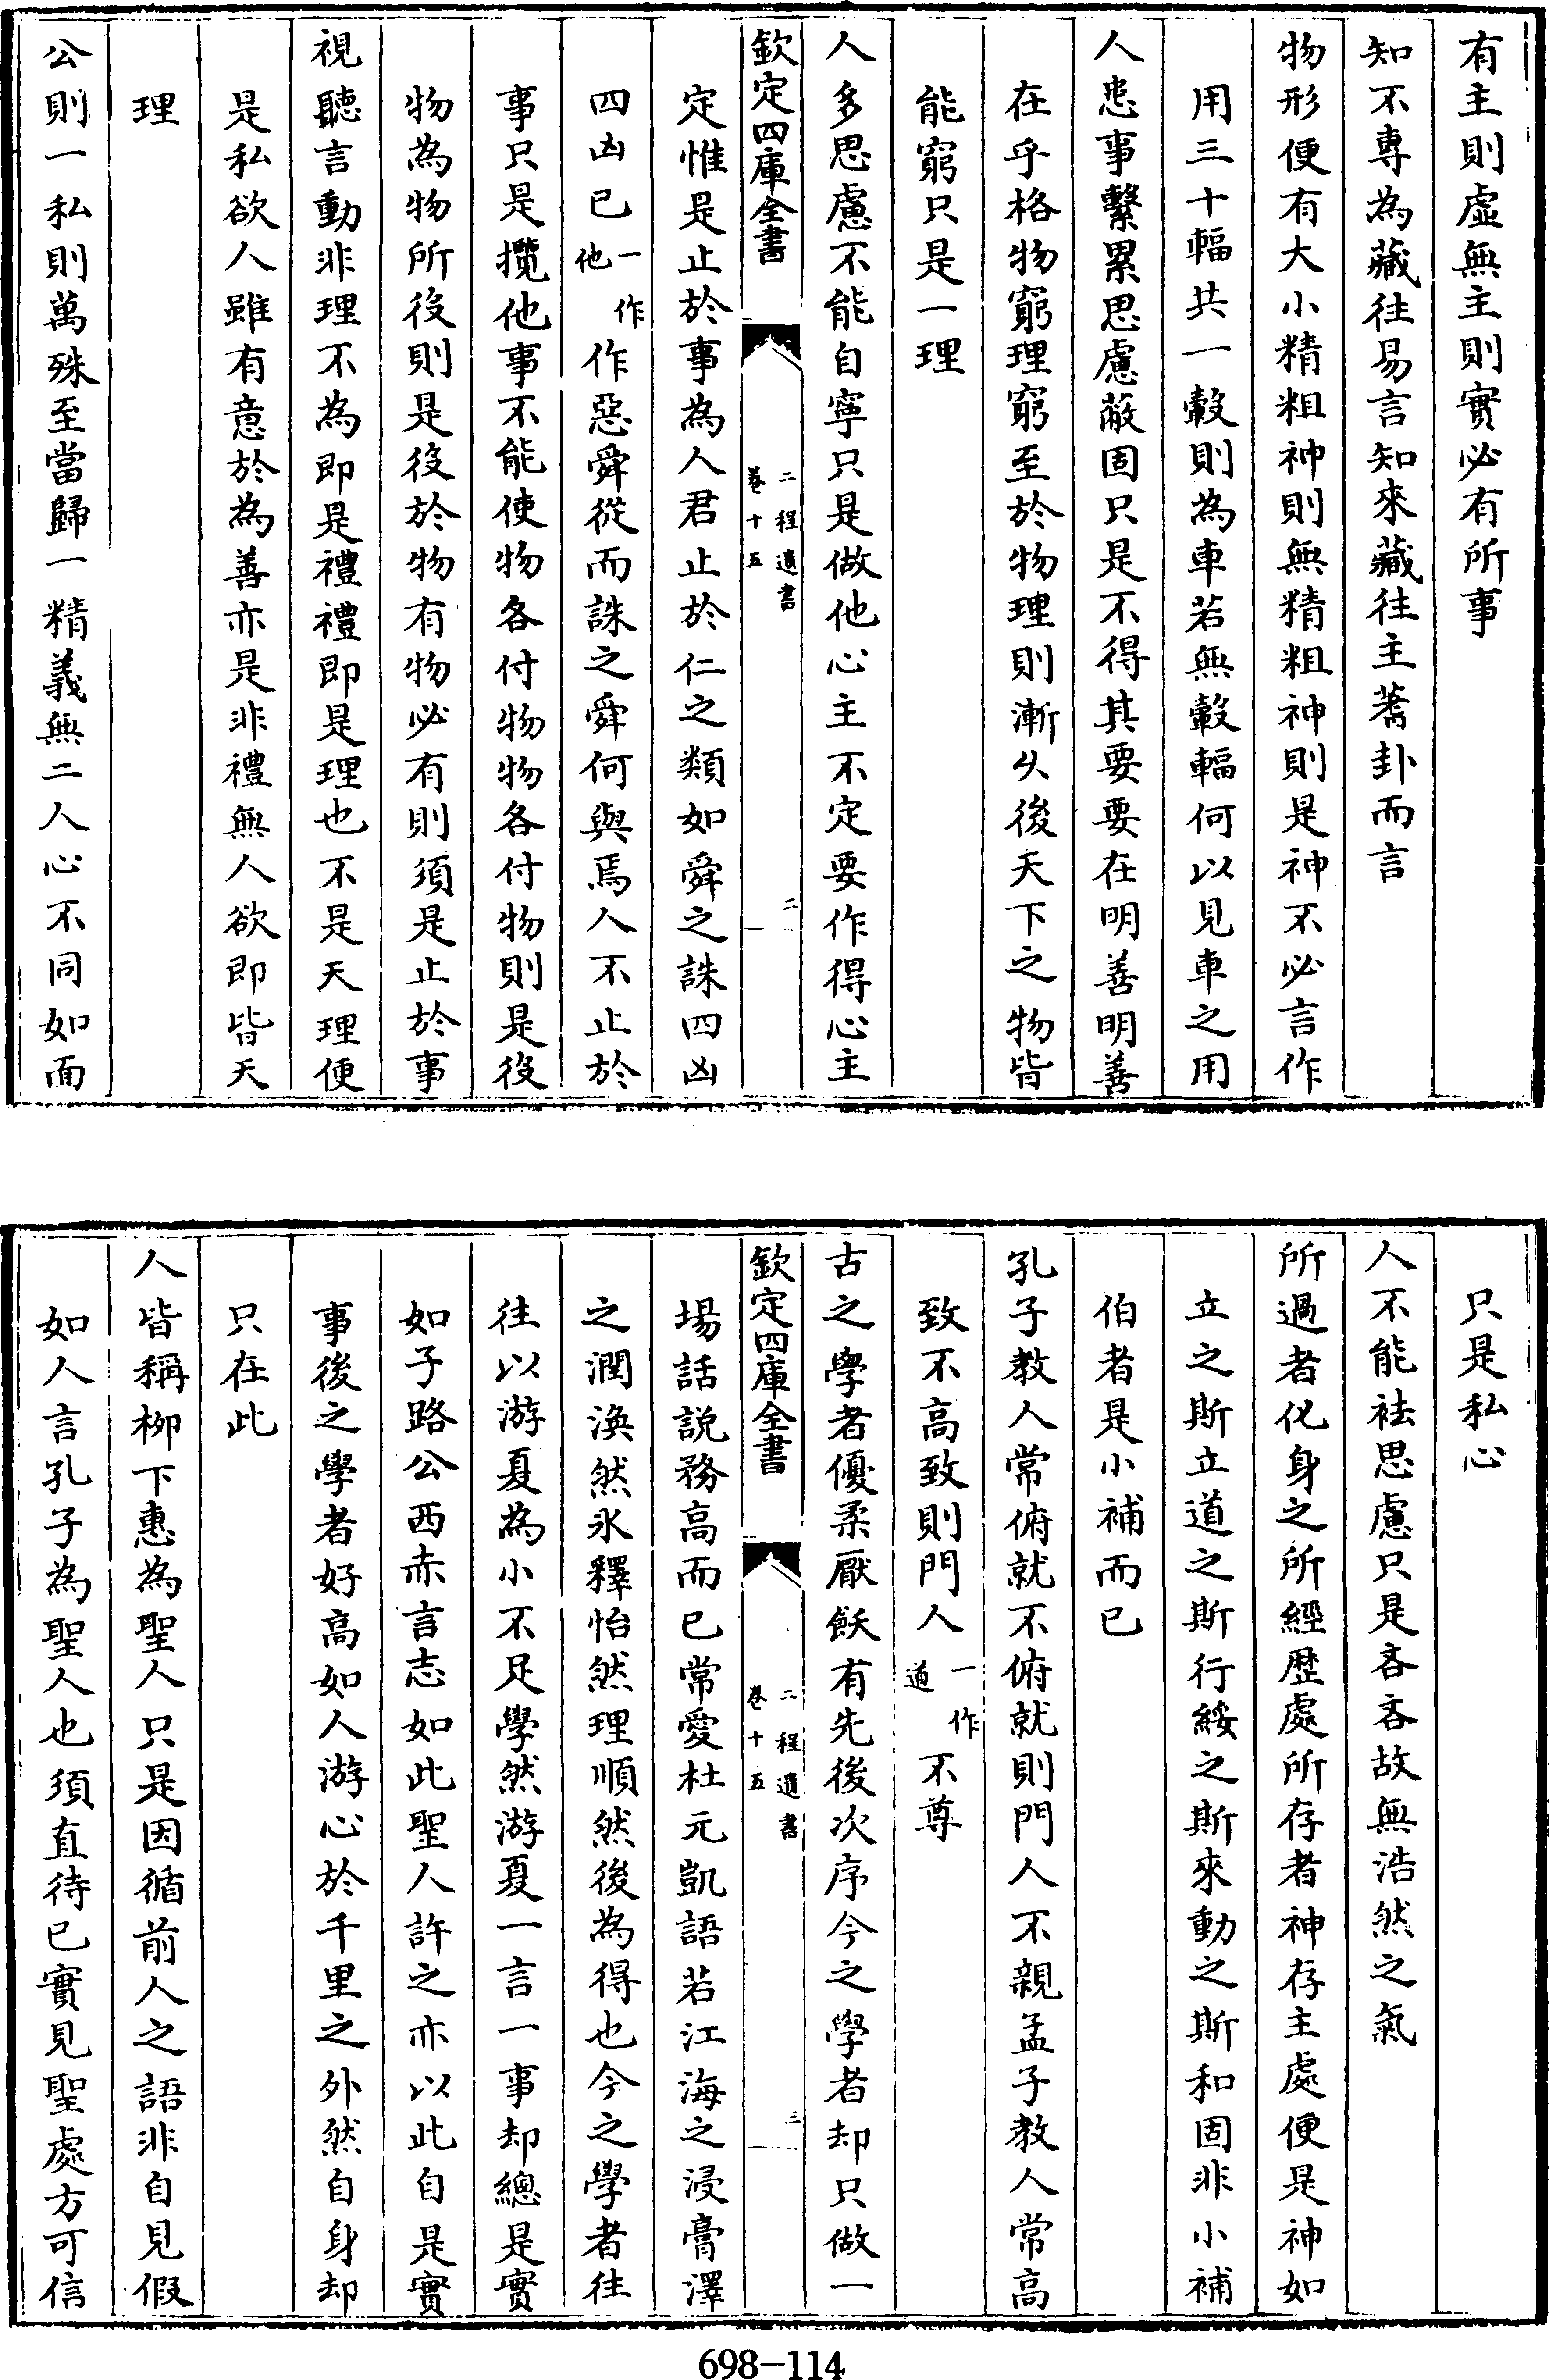 有主則虛無主則實必有所事
知不專為藏往易言知來藏往主蓍卦而言
物形便有大小精粗神則無精粗神則是神不必言作
用三十輻共一轂則為車若無轂輻何以見車之用
人患事繫累思慮蔽固只是不得其要要在明善明善
在乎格物窮理窮至於物理則漸久後天下之物皆
能窮只是一理
人多思慮不能自寧只是做他心主不定要作得心主
欽定四庫全書
二程遺書
卷十五
二
定惟是止於事為人君止於仁之類如舜之誅四凶
四凶已一作他作惡舜從而誅之舜何與焉人不止於
事只是攬他事不能使物各付物物各付物則是役
物為物所役則是役於物有物必有則須是止於事
視聽言動非理不為即是禮禮即是理也不是天理便
是私欲人雖有意於為善亦是非禮無人欲即皆天
理
公則一私則萬殊至當歸一精義無二人心不同如面
只是私心
人不能祛思慮只是吝吝故無浩然之氣
所過者化身之所經歷處所存者神存主處便是神如
立之斯立道之斯行綏之斯來動之斯和固非小補
伯者是小補而已
孔子教人常俯就不俯就則門人不親孟子教人常高
致不高致則門人一作道不尊
古之學者優柔厭飫有先後次序今之學者却只做一
欽定四庫全書
二程遺書
卷十五
三
場話説務高而已常愛杜元凱語若江海之浸膏澤
之潤渙然氷釋怡然理順然後為得也今之學者往
往以游夏為小不足學然游夏一言一事却總是實
如子路公西赤言志如此聖人許之亦以此自是實
事後之學者好高如人游心於千里之外然自身却
只在此
人皆稱柳下惠為聖人只是因循前人之語非自見假
如人言孔子為聖人也須直待已實見聖處方可信
698-114